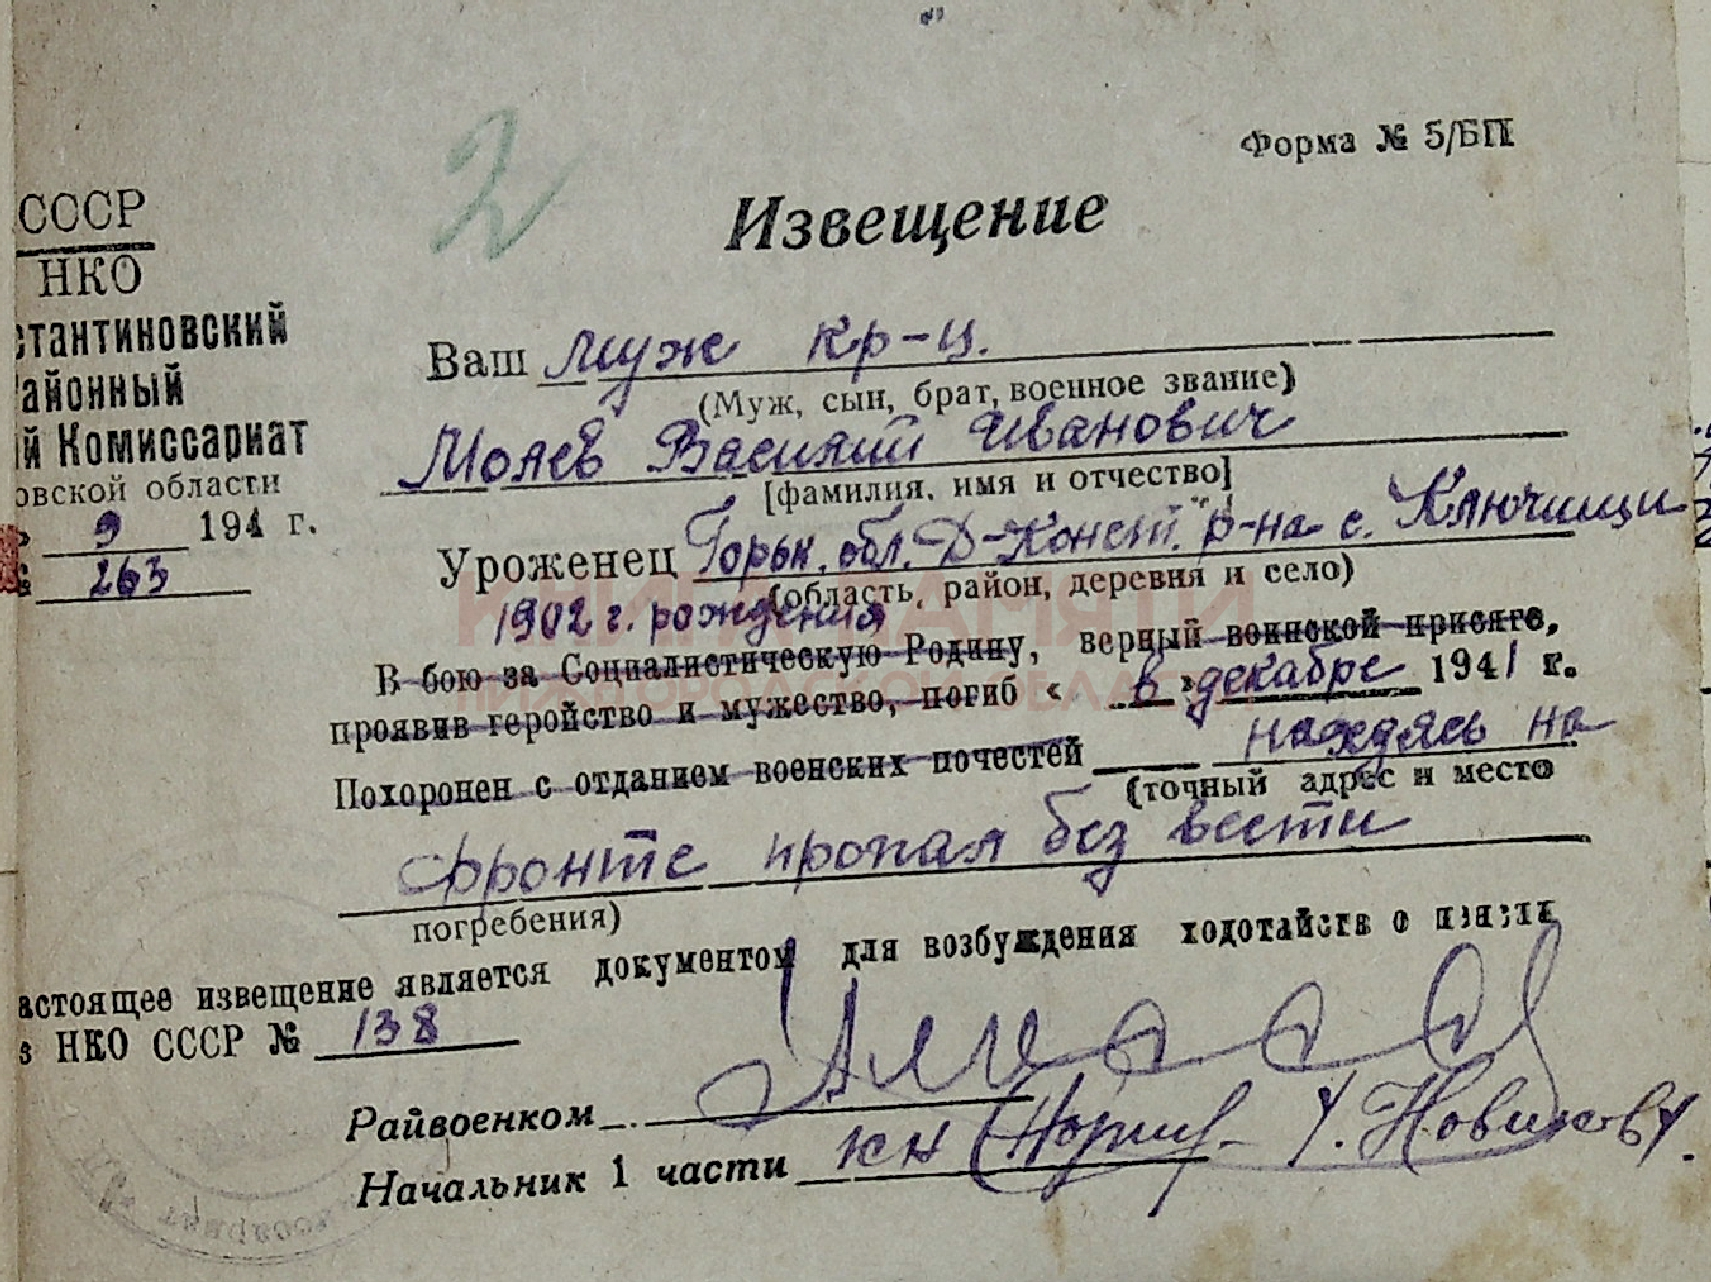 2
Форма № 5/БП
СССР
НКО
стантиновский
айонный
й Комиссариат
овской области
9 194 г.
263
Извещение
Ваш муж кр-ц.
(Муж, сын, брат, военное звание)
Моляев Василий Иванович
[фамилия, имя и отчество]
Уроженец Горьк. обл. Д-Конст. р-на с. Ключищи
(область, район, деревня и село)
1902 г. рождения
КНИГА ПАМЯТИ
НИЖЕГОРОДСКОЙ ОБЛАСТИ
В бою за Социалистическую Родину, верный воинской присяге,
проявив геройство и мужество, погиб « в » декабре 1941 г.
Похоронен с отданием военских почестей находясь на
(точный адрес и место
фронте пропал без вести
погребения)
астоящее извещение является документом для возбуждения ходотайств о
з НКО СССР № 138
Райвоенком
Начальник 1 части